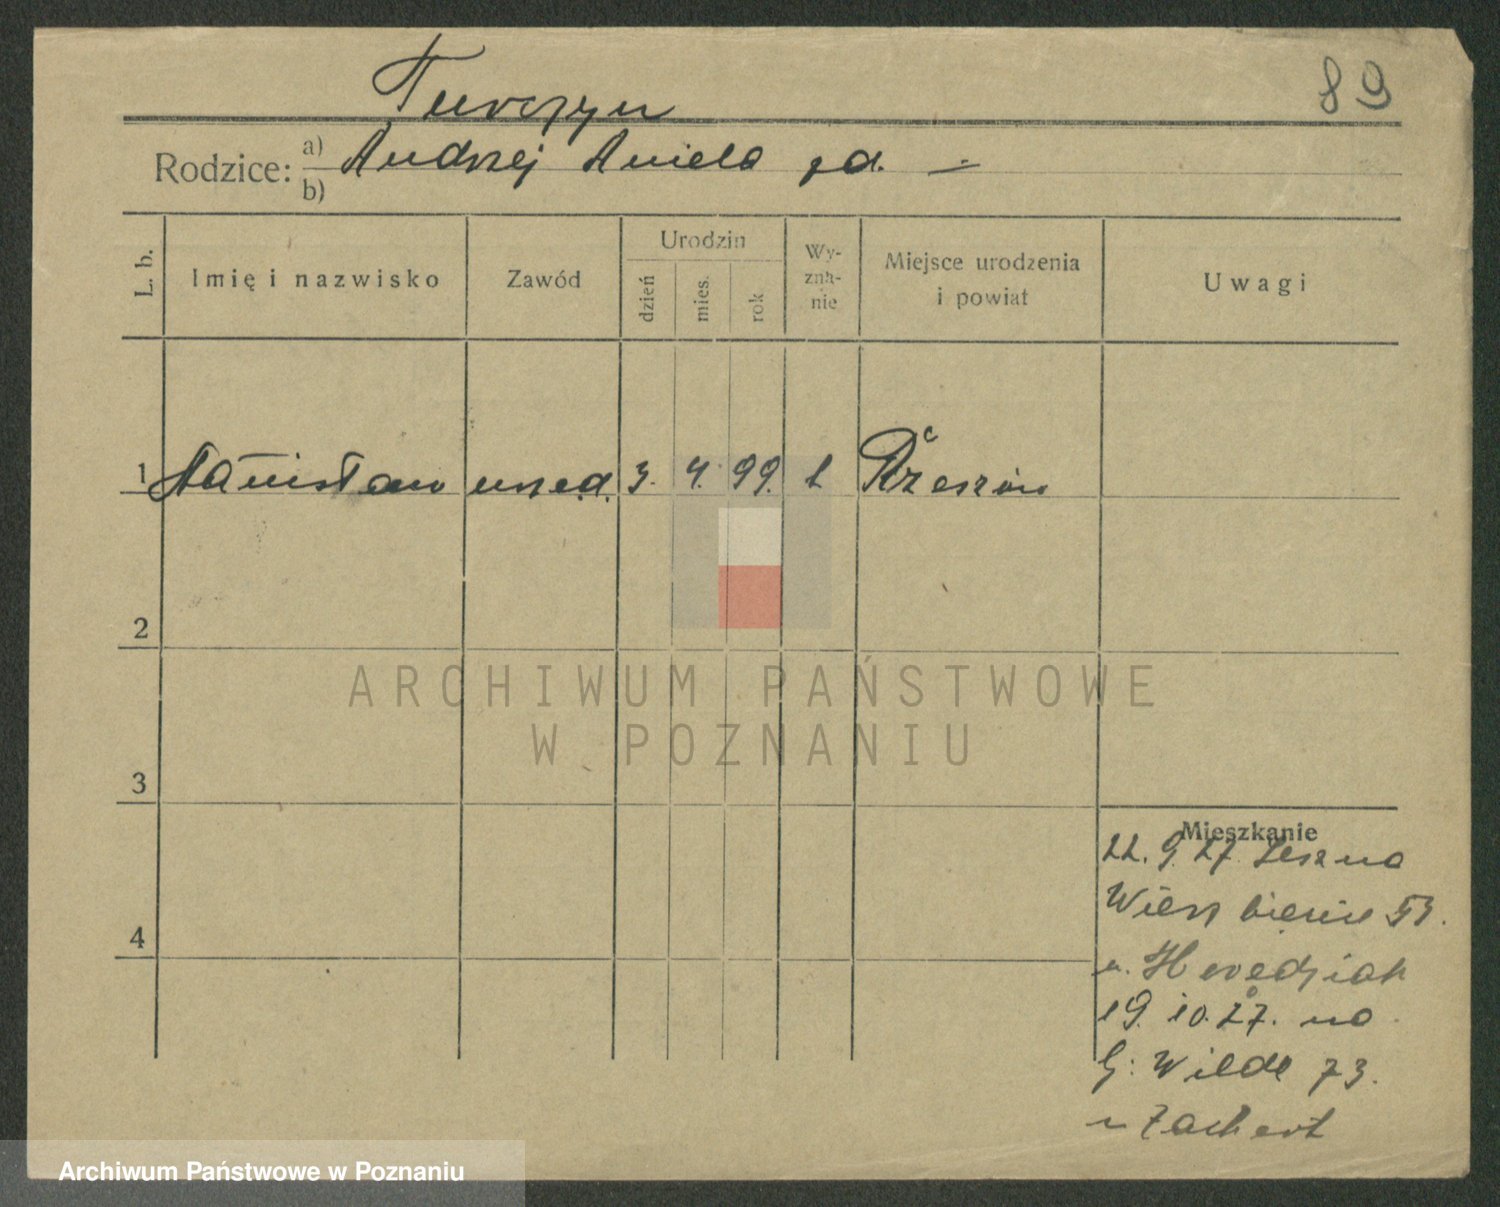 89
Turczyn
Rodzice: a) Andrzej Aniela zd. —
b)
L. b.
Imię i nazwisko
Zawód
Urodzin
dzień
mies.
rok
Wy-
zna-
nie
Miejsce urodzenia
i powiat
Uwagi
1 Stanisław urzęd. 3. 4. 99. Rzeszów
2
ARCHIWUM PAŃSTWOWE
W POZNANIU
3
4
Mieszkanie
22. 9. 27. Leszna
53.
19. 10. 27. na
G: Wilde 73.
Zachert
Archiwum Państwowe w Poznaniu